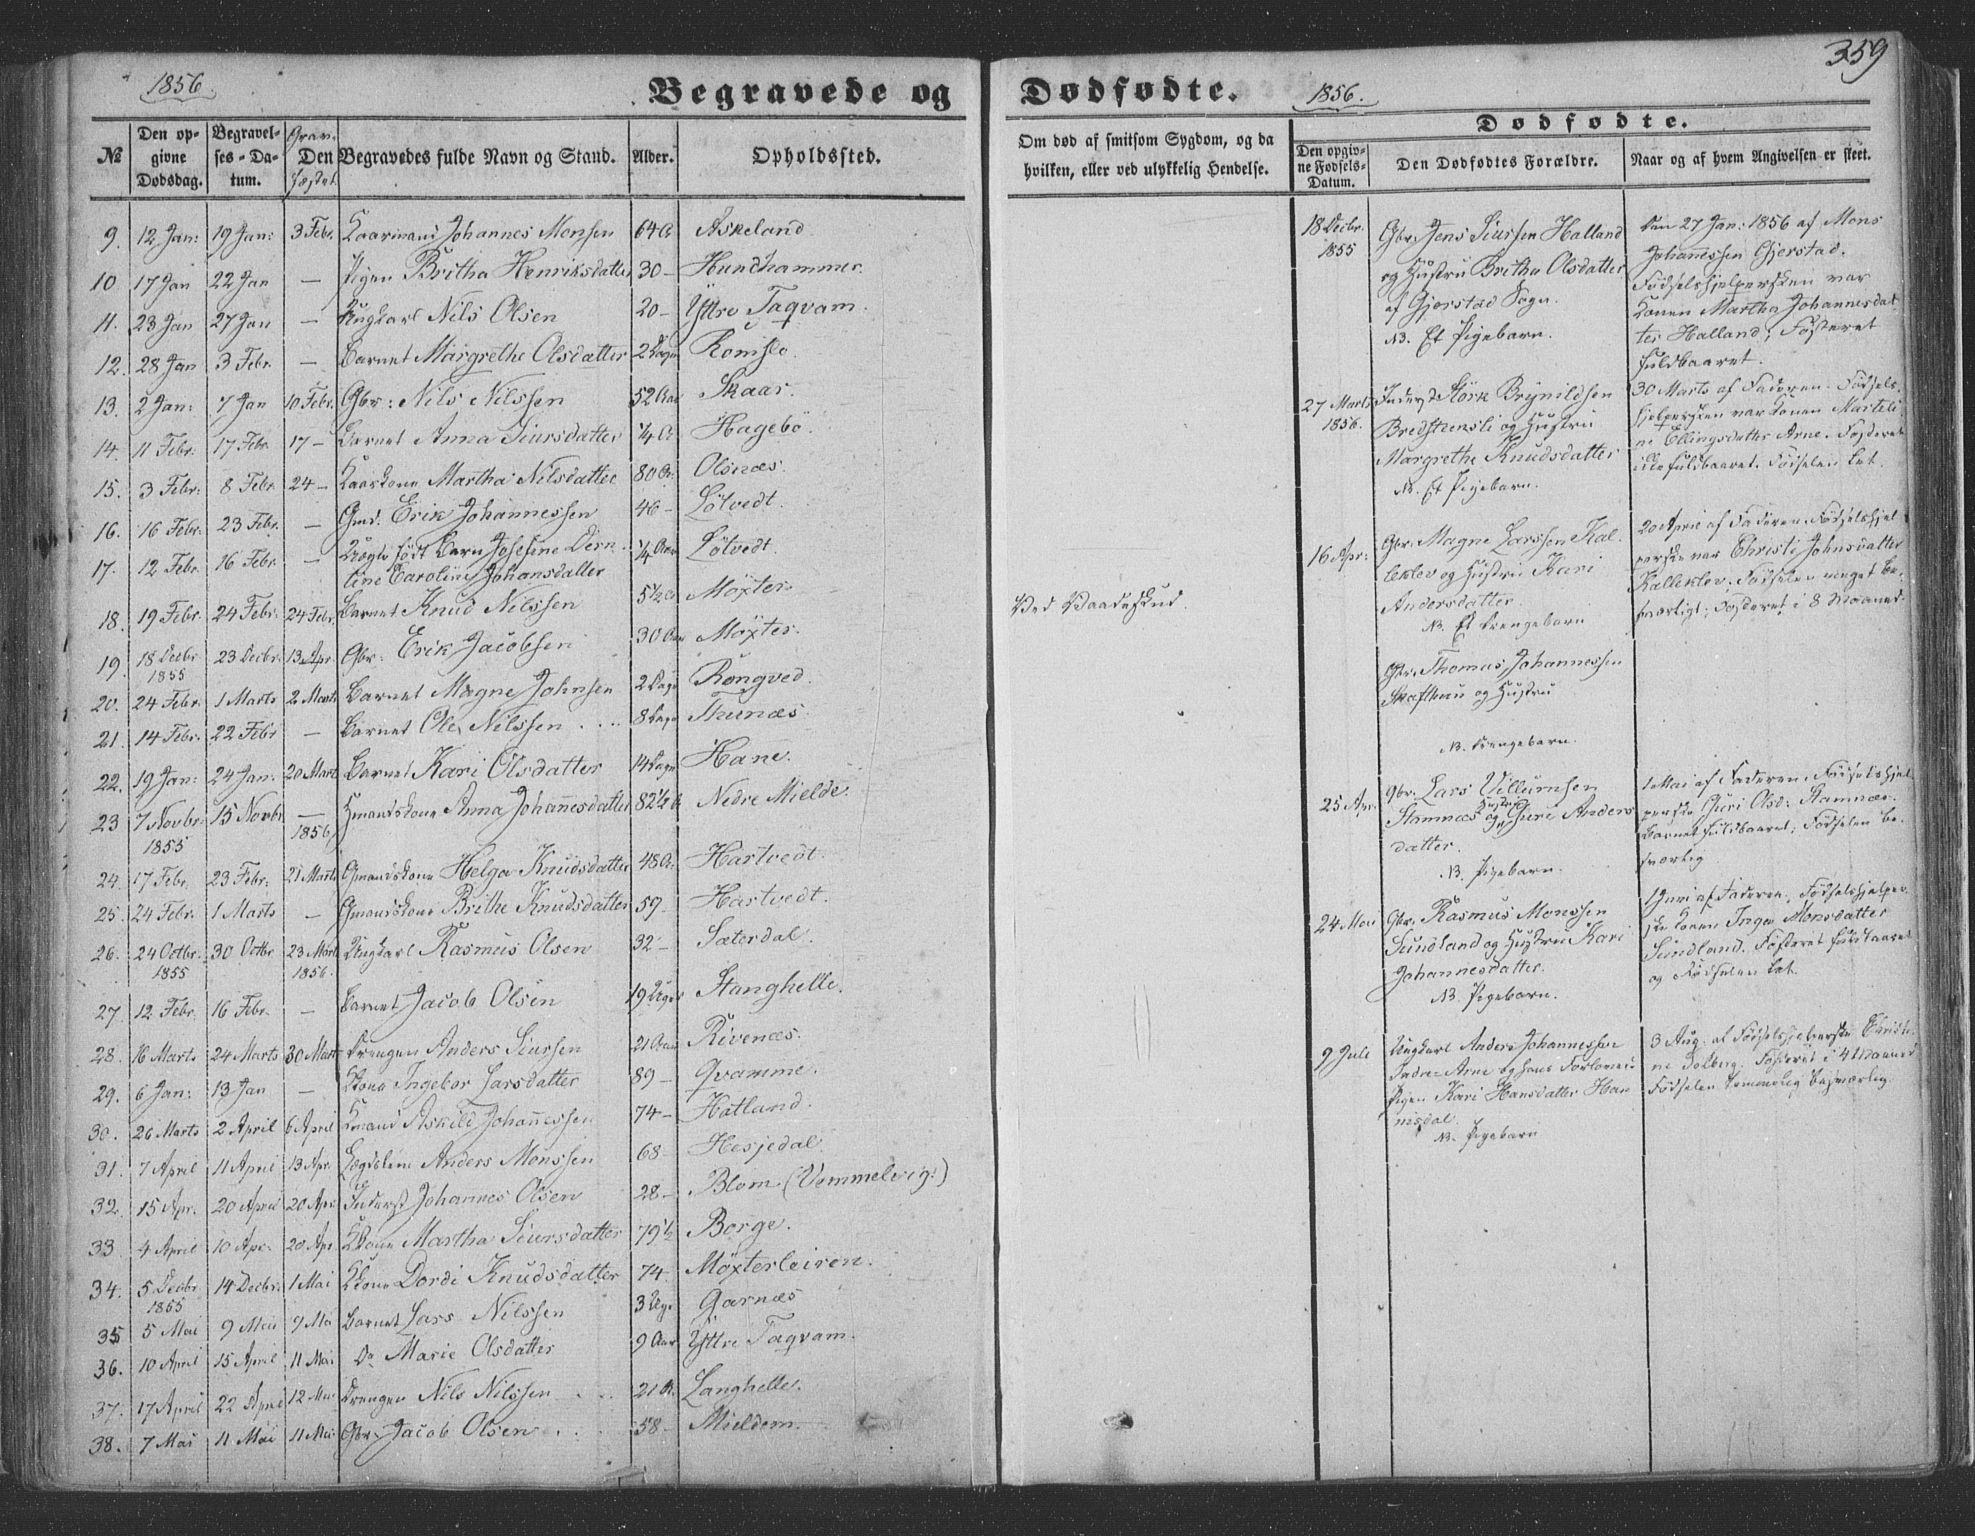 359
1856.
Begravede og Dødfødte.
1856.
№
Den opgivne Dødsdag.
Begravelses-Datum.
Den
Begravedes fulde Navn og Stand.
Alder.
Opholdssted.
Om død af smitsom Sygdom, og da hvilken, eller ved ulykkelig Hendelse.
Dødfødte.
Den opgivne Fødsels-Datum.
Den Dødfødtes Forældre.
Naar og af hvem Angivelsen er skeet.
9. 12 Jan: 19 Jan: 3 Febr. Kaarmand Johannes Monsen 64 A Askeland
10 17 Jan 22 Jan — Pigen Britha Henriksdatter 30 — Hundhammer
11. 23 Jan 27 Jan — Ungkarl Nils Olsen 20 — Yttre Taqvam.
12. 28 Jan 3 Febr. — Barnet Margrethe Olsdatter 2 Dage Romslo
13. 2 Jan: 7 Jan 10 Febr. Gbr: Nils Nilssen 52 Aar Skaar.
14. 11 Febr. 17 Febr. 17 — Barnet Anna Siursdatter ¼ A. Hagebö.
15. 3 Febr: 8 Febr. 24 — Kaarkone Martha Nilsdatter 80 A. Olsnæs.
16. 16 Febr. 23 Febr. — Gmd. Erik Johannessen 46 — Lötvedt.
17. 12 Febr. 16 Febr. — Uægte født Barn Josefine Bern-
tine Caroline Johansdatter ¼ Aar Lötvedt.
18. 19 Febr. 24 Febr. 24 Febr. Barnet Knud Nilssen 5½ A Möxter. 
19. 18 Decbr. 1855 23 Decbr. 13 Apr. Gbr: Erik Jacobsen 30 Aar Möxter. Ved Vaadeskud.
20. 24 Febr. 1 Marts 2 Marts Barnet Magne Johnsen 2 Dage Rongved.
21. 14 Febr. 22 Febr — Barnet Ole Nilssen 8 Dage Thunæs.
22. 19 Jan: 24 Jan: 20 Mart Barnet Kari Olsdatter 14 Dage Hane.
23 7 Novbr. 1855 15 Novbr — 1856 Gmandskone Anna Johannesdatter 82½ A Nedre Mielde.
24. 17 Febr. 23 Febr. 21 Marts Gmandskone Helga Knudsdatter 48 A. Hartvedt.
25. 24 Febr. 1 Marts — Gmandskone Brithe Knudsdatter 59 — Hartvedt.
26. 24 Octbr. 1855 30 Octbr 23 Mart 1856. Ungkarl Rasmus Olsen 32 — Sæterdal.
27. 12 Febr. 16 Febr. — Barnet Jacob Olsen 19 Uger Stanghelle.
28. 16 Marts 24 Marts 30 Mart Drengen Anders Siursen 21 Aar Rivenæs.
29. 6 Jan: 13 Jan — Kkone Ingebor Larsdatter 89 — Qvamme.
30. 26 Marts 2 April 6 April Kmand Askild Johannessen 74 — Hatland.
31. 7 April 11 April 13 Apr. Lægdslem Anders Monssen 68 — Hesjedal.
32. 15 Apr. 20 April 20 Apr Inderst Johannes Olsen 28 — Blom (Vommelvig:)
33 4 April 10 Apr. 20 Apr. Kkone Martha Siursdatter 79½ Borge.
34. 5 Decbr 1855 14 Decbr. 1 Mai Kkone Dordi Knudsdatter 74. Möxterleiren.
35 5 Mai 9 Mai 9 Mai Barnet Lars Nilssen 3 Uger Garnæs
36. 10 April 15 April 11 Mai Do Marie Olsdatter 9 Aar Yttre Taqvam.
37. 17 April 22 April 12 Mai Drengen Nils Nilssen 21 A. Langhelle.
38. 7 Mai 11 Mai 11 Mai Gbr. Jacob Olsen 58 — Mieldem.
18 Decbr. 1855
Gbr. Jens Siursen Halland
og Hustru Britha Olsdatter
af Gjerstad Sogn.
NB. Et Pigebarn.
Den 27 Jan: 1856 af Mons
Johannessen Gjerstad.
Fødselshjelpersken var
Konen Martha Johannesdat-
ter Halland; Fosteret
fuldbaaret.
27 Marts 1856.
Inderst Störk Brynildsen
Bredstensli og Hustru
Margrethe Knudsdatter
NB. Et Pigebarn.
30 Marts af Faderen. Fødsels-
hjelpersken var Konen Marteli-
ne Ellingsdatter Arne. Fosteret
ille fuldbaaret. Fødselen let.
16 Apr:
Gbr. Magne Larssen Kal-
leklev og Hustru Kari
Andersdatter.
NB. Et Drengebarn
20 April af Faderen. Fødselshjel-
perske var Christi Johnsdatter
Kalleklev. Fødselen meget be-
sværligt; Fosteret i 8 Maaned.
Gbr. Thomas Johannessen
Skaftnu og Hustru
NB. Drengebarn.
25 Apr.
Gbr. Lars Villumsen
Stamnæs og Hustru Guri Anders
datter.
NB. Pigebarn.
1 Mai af Faderen. Fødselshjel-
perske Guri Olsd: Stamnæs.
Barnet fuldbaaret; Fødselen be-
sværlig
24 Mai
Gbr. Rasmus Monssen
Sundland og Hustru Kari
Johannesdatter.
NB. Pigebarn.
1 Juni af Faderen. Fødselshjelper-
ske Konen Inger Monsdatter
Sundland. Fosteret fuldbaaret
og Fødselen let.
9 Juli
Ungkarl Anders Johannessen
Indre-Arne og hans Forlovede
Pigen Kari Hansdatter Han-
nisdal.
NB. Pigebarn
3 Aug. af Fødselshjelperske Christi-
ne Solberg. Fosteret i 4 Maaned
Fødselen temmelig besværlig